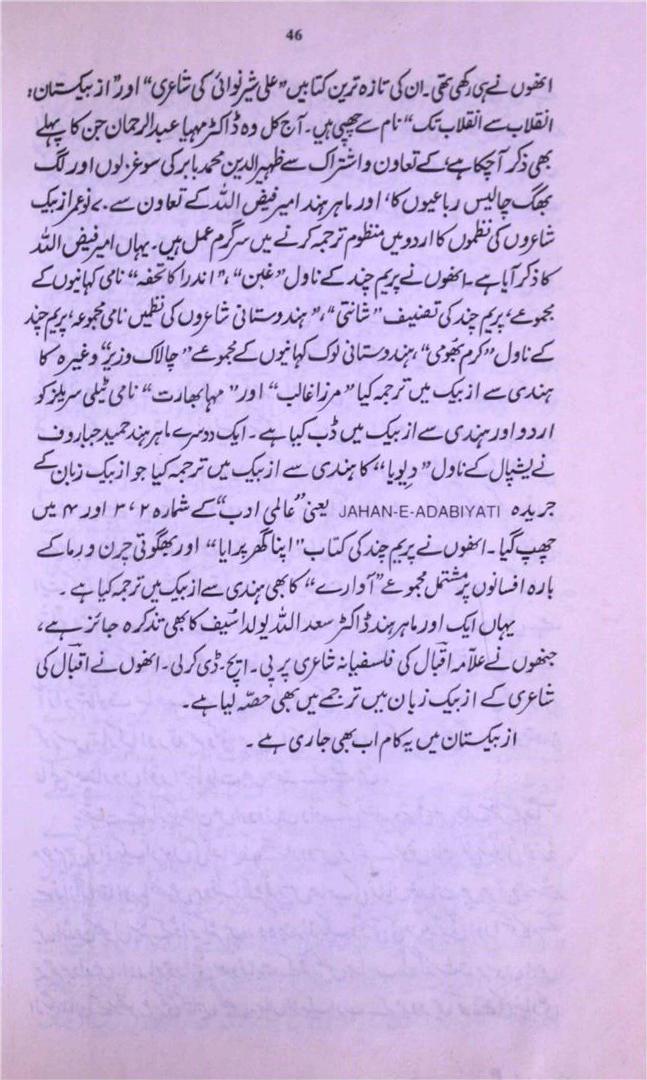 46
انھوں نے ہی رکھی تھی۔ ان کی تازہ ترین کتابیں "علی شیر نوائی کی شاعری" اور "ازبیکستان:
انقلاب سے انقلاب تک" نام سے چھپی ہیں۔ آج کل وہ ڈاکٹر مہیا عبدالرحمان جن کا پہلے
بھی ذکر آچکا ہے، کے تعاون و اشتراک سے ظہیر الدین محمد بابر کی سو غزلوں اور لگ
بھگ چالیس رباعیوں کا، اور ماہر ہند امیر فیض اللہ کے تعاون سے ۷۰ نوعمر ازبیک
شاعروں کی نظموں کا اردو میں منظوم ترجمہ کرنے میں سرگرم عمل ہیں۔ یہاں امیر فیض اللہ
کا ذکر آیا ہے۔ انھوں نے پریم چند کے ناول "غبن"، "اندرا کا تحفہ" نامی کہانیوں کے
مجموعے، پریم چند کی تصنیف "شانتی"، "ہندوستانی شاعروں کی نظمیں نامی مجموعہ، پریم چند
کے ناول "کرم بھومی"، ہندوستانی لوک کہانیوں کے مجموعے "چالاک وزیر" وغیرہ کا
ہندی سے ازبیک میں ترجمہ کیا "مرزا غالب" اور "مہابھارت" نامی ٹیلی سریلز کو
اردو اور ہندی سے ازبیک میں ڈب کیا ہے۔ ایک دوسرے ماہر ہند حمید جباروف
نے یشپال کے ناول "دِیویا" کا ہندی سے ازبیک میں ترجمہ کیا جو ازبیک زبان کے
جریدہ JAHAN-E-ADABIYATI یعنی "عالمی ادب" کے شمارہ ۲، ۳ اور ۴ میں
چھپ گیا۔ انھوں نے پریم چند کی کتاب "اپنا گھر پرایا" اور بھگوتی چرن ورما کے
بارہ افسانوں پر مشتمل مجموعے "آوارے" کا بھی ہندی سے ازبیک میں ترجمہ کیا ہے۔
یہاں ایک اور ماہر ہند ڈاکٹر سعد اللہ یولداشیف کا بھی تذکرہ جائز ہے،
جنھوں نے علامہ اقبال کی فلسفیانہ شاعری پر پی۔ ایچ۔ ڈی کر لی۔ انھوں نے اقبال کی
شاعری کے ازبیک زبان میں ترجمے میں بھی حصّہ لیا ہے۔
ازبیکستان میں یہ کام اب بھی جاری ہے۔